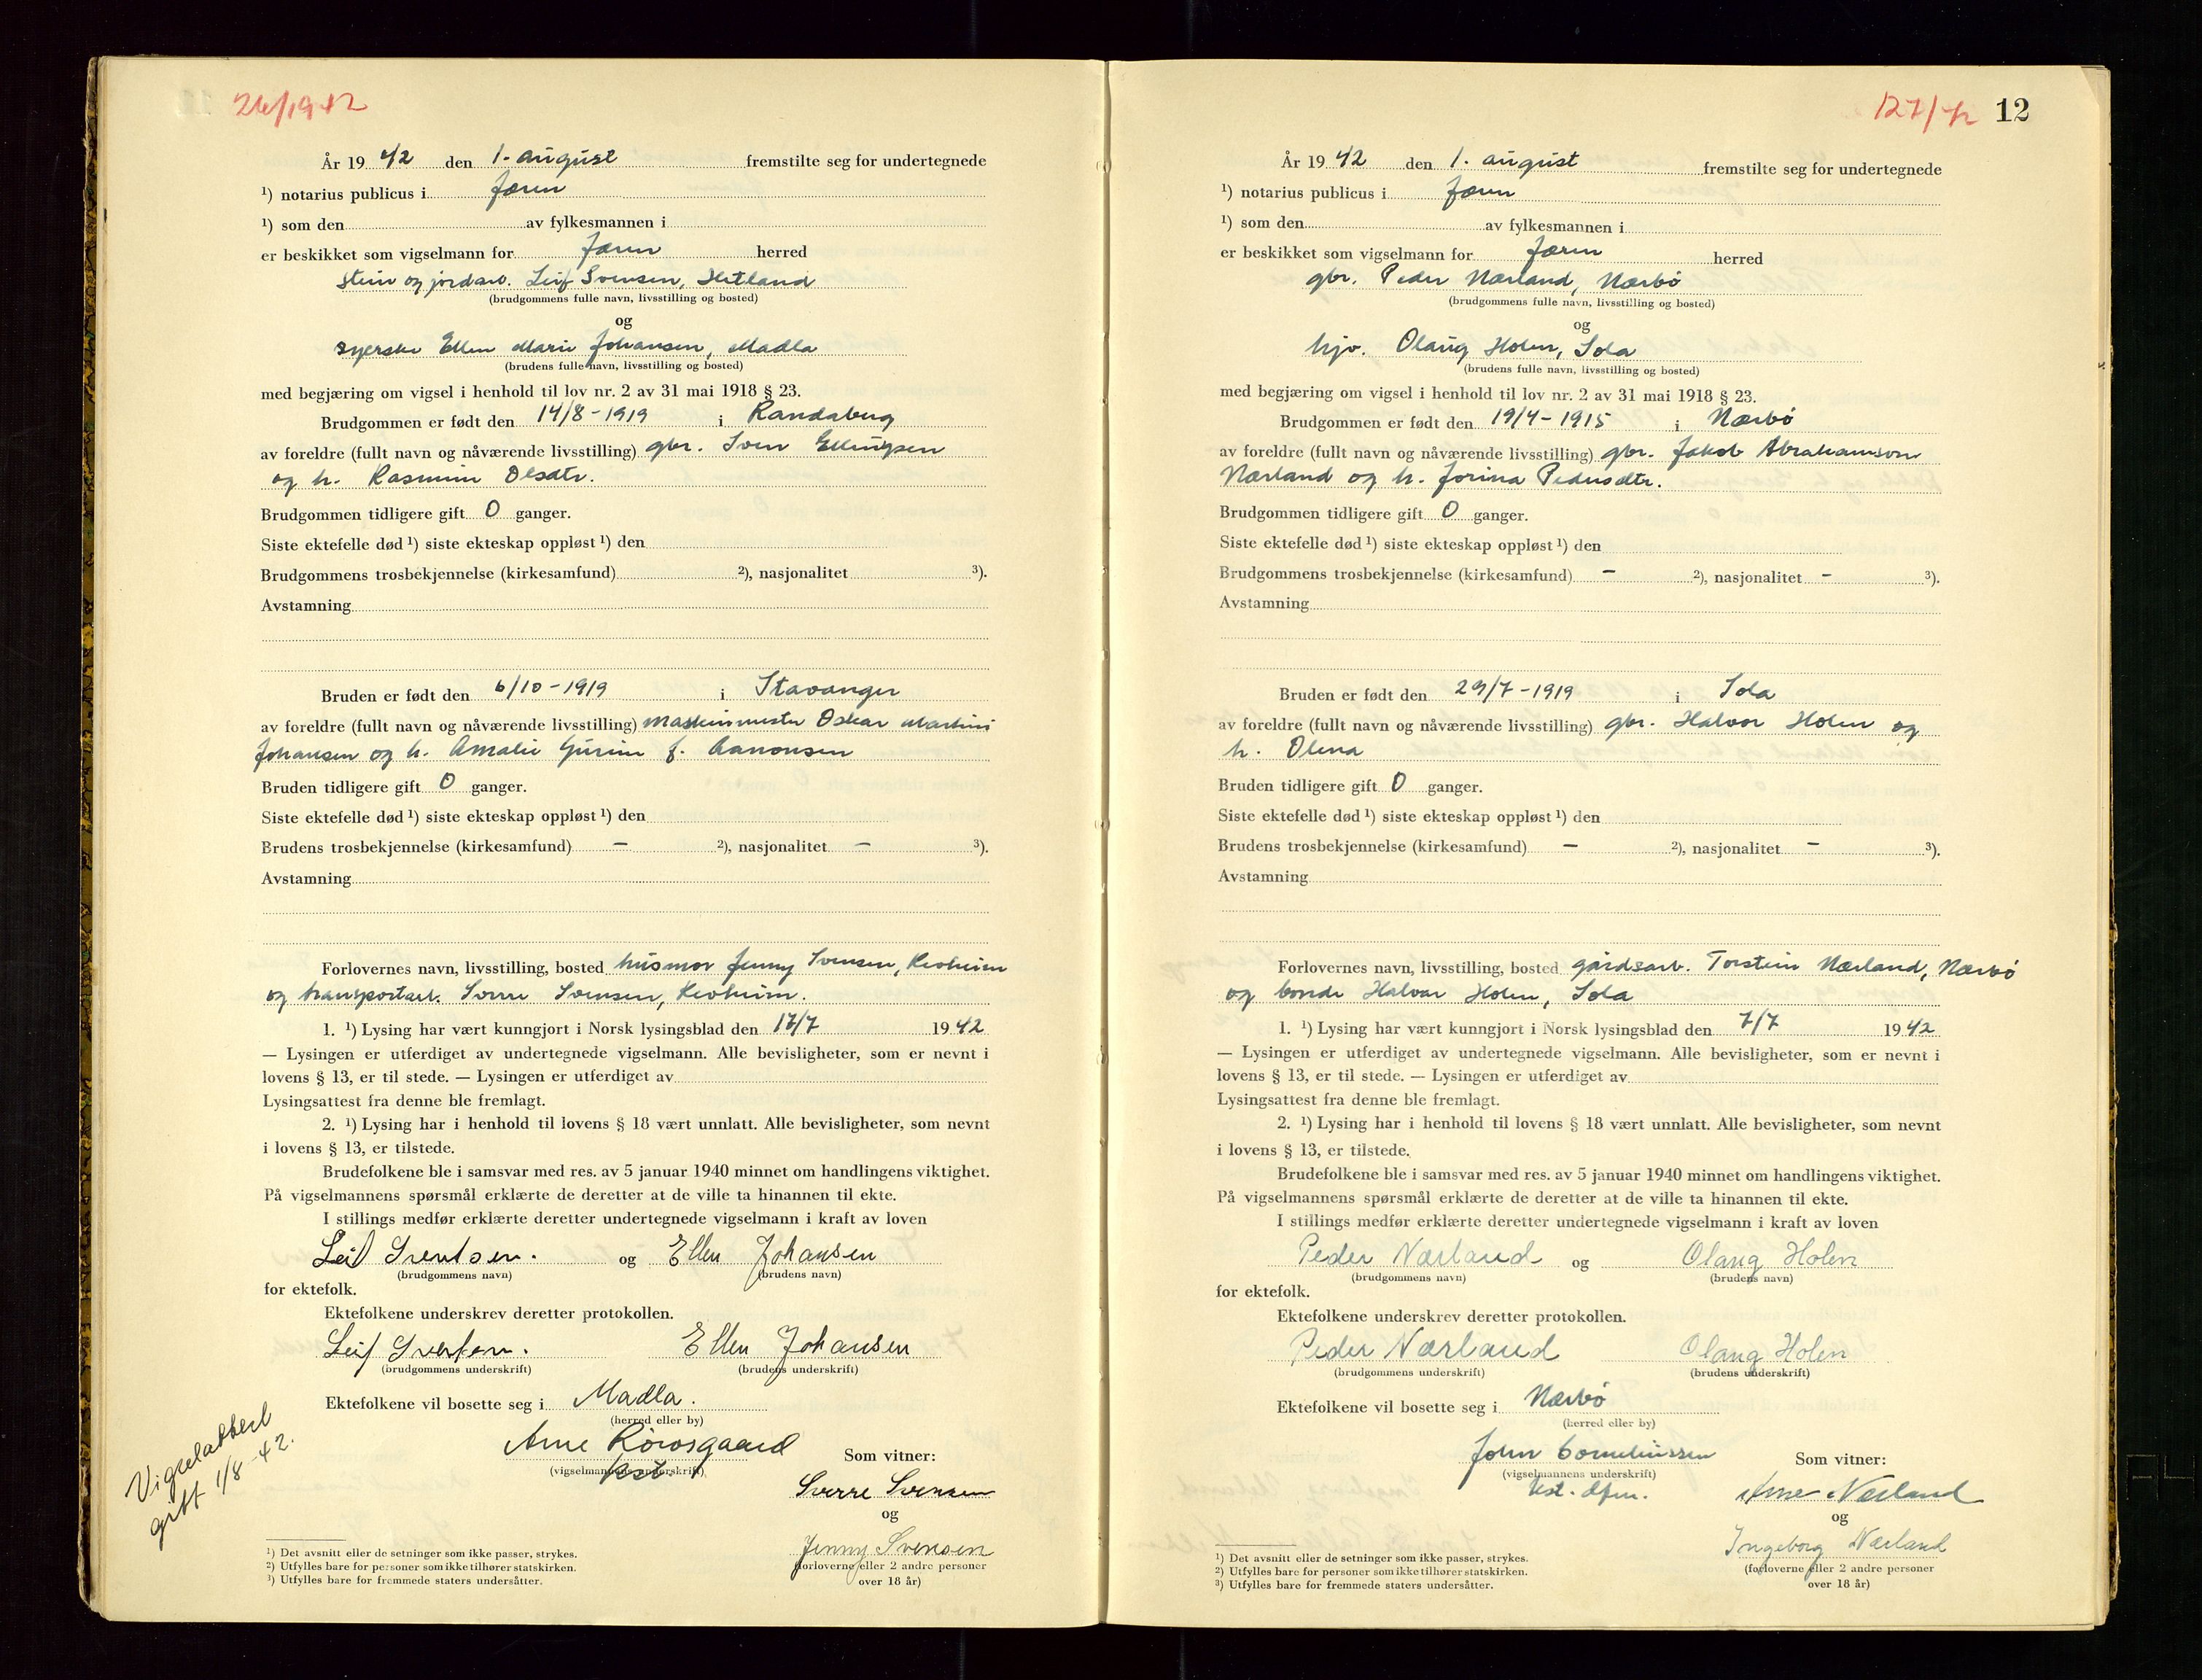 26/1942
År 19 42 den 1. august fremstilte seg for undertegnede
¹) notarius publicus i Jæren
¹) som den av fylkesmannen i
er beskikket som vigselmann for Jæren herred
stein og jordarb. Leif Svensen, Hetland
(brudgommens fulle navn, livsstilling og bosted)
og
syerske Ellen Marie Johansen, Madla
(brudens fulle navn, livsstilling og bosted)
med begjæring om vigsel i henhold til lov nr. 2 av 31 mai 1918 § 23.
Brudgommen er født den 14/8-1919 i Randaberg
av foreldre (fullt navn og nåværende livsstilling) gbr. Sven Ellingsen
og h. Rasmine Olsdtr.
Brudgommen tidligere gift 0 ganger.
Siste ektefelle død ¹) siste ekteskap oppløst ¹) den
Brudgommens trosbekjennelse (kirkesamfund) ²), nasjonalitet ³).
Avstamning
Bruden er født den 6/10-1919 i Stavanger
av foreldre (fullt navn og nåværende livsstilling) maskinmester Oskar Martini
Johansen og h. Amalie Gurine f. Aanonsen
Bruden tidligere gift 0 ganger.
Siste ektefelle død ¹) siste ekteskap oppløst ¹) den
Brudens trosbekjennelse (kirkesamfund) - ²), nasjonalitet - ³).
Avstamning
Forlovernes navn, livsstilling, bosted husmor Jenny Svensen, Kvoheim
og transportarb. Sverre Svensen, Kvoheim.
1. ¹) Lysing har vært kunngjort i Norsk lysingsblad den 17/7 1942
— Lysingen er utferdiget av undertegnede vigselmann. Alle bevisligheter, som er nevnt i
lovens § 13, er til stede. — Lysingen er utferdiget av
Lysingsattest fra denne ble fremlagt.
2. ¹) Lysing har i henhold til lovens § 18 vært unnlatt. Alle bevisligheter, som nevnt
i lovens § 13, er tilstede.
Brudefolkene ble i samsvar med res. av 5 januar 1940 minnet om handlingens viktighet.
På vigselmannens spørsmål erklærte de deretter at de ville ta hinannen til ekte.
I stillings medfør erklærte deretter undertegnede vigselmann i kraft av loven
Leif Svendsen. og Ellen Johansen
(brudgommens navn) (brudens navn)
for ektefolk.
Ektefolkene underskrev deretter protokollen.
Leif Svensen. Ellen Johansen
(brudgommens underskrift) (brudens underskrift)
Ektefolkene vil bosette seg i Madla.
(herred eller by)
Arne Rorosgaard
(vigselmannens underskrift)
Som vitner:
Sverre Svensen
og
Jenny Svensen
(forloverne eller 2 andre personer
over 18 år)
Vigselattest
gitt 1/8-42.
¹) Det avsnitt eller de setninger som ikke passer, strykes.
²) Utfylles bare for personer som ikke tilhører statskirken.
³) Utfylles bare for fremmede staters undersåtter.
127/42 12
År 19 42 den 1. august fremstilte seg for undertegnede
¹) notarius publicus i Jæren
¹) som den av fylkesmannen i
er beskikket som vigselmann for Jæren herred
gbr. Peder Nærland, Nærbö
(brudgommens fulle navn, livsstilling og bosted)
og
hjv. Olaug Holen, Sola
(brudens fulle navn, livsstilling og bosted)
med begjæring om vigsel i henhold til lov nr. 2 av 31 mai 1918 § 23.
Brudgommen er født den 19/4-1915 i Nærbö
av foreldre (fullt navn og nåværende livsstilling) gbr. Jakob Abrahamson
Nærland og h. Jorina Pedersdtr.
Brudgommen tidligere gift 0 ganger.
Siste ektefelle død ¹) siste ekteskap oppløst ¹) den
Brudgommens trosbekjennelse (kirkesamfund) - ²), nasjonalitet - ³).
Avstamning
Bruden er født den 29/7-1919 i Sola
av foreldre (fullt navn og nåværende livsstilling) gbr. Halvor Holen og
h. Olena
Bruden tidligere gift 0 ganger.
Siste ektefelle død ¹) siste ekteskap oppløst ¹) den
Brudens trosbekjennelse (kirkesamfund) - ²), nasjonalitet - ³).
Avstamning
Forlovernes navn, livsstilling, bosted gårdsarb. Torstein Nærland, Nærbö
og bonde Halvor Holen, Sola
1. ¹) Lysing har vært kunngjort i Norsk lysingsblad den 7/7 1942
— Lysingen er utferdiget av undertegnede vigselmann. Alle bevisligheter, som er nevnt i
lovens § 13, er til stede. — Lysingen er utferdiget av
Lysingsattest fra denne ble fremlagt.
2. ¹) Lysing har i henhold til lovens § 18 vært unnlatt. Alle bevisligheter, som nevnt
i lovens § 13, er tilstede.
Brudefolkene ble i samsvar med res. av 5 januar 1940 minnet om handlingens viktighet.
På vigselmannens spørsmål erklærte de deretter at de ville ta hinannen til ekte.
I stillings medfør erklærte deretter undertegnede vigselmann i kraft av loven
Peder Nærland og Olaug Holen
(brudgommens navn) (brudens navn)
for ektefolk.
Ektefolkene underskrev deretter protokollen.
Peder Nærland Olaug Holen
(brudgommens underskrift) (brudens underskrift)
Ektefolkene vil bosette seg i Nærbö
(herred eller by)
John Corneliussen
(vigselmannens underskrift)
kst. dfm.
Som vitner:
Arne Nærland
og
Ingeborg Nærland
(forloverne eller 2 andre personer
over 18 år)
¹) Det avsnitt eller de setninger som ikke passer, strykes.
²) Utfylles bare for personer som ikke tilhører statskirken.
³) Utfylles bare for fremmede staters undersåtter.